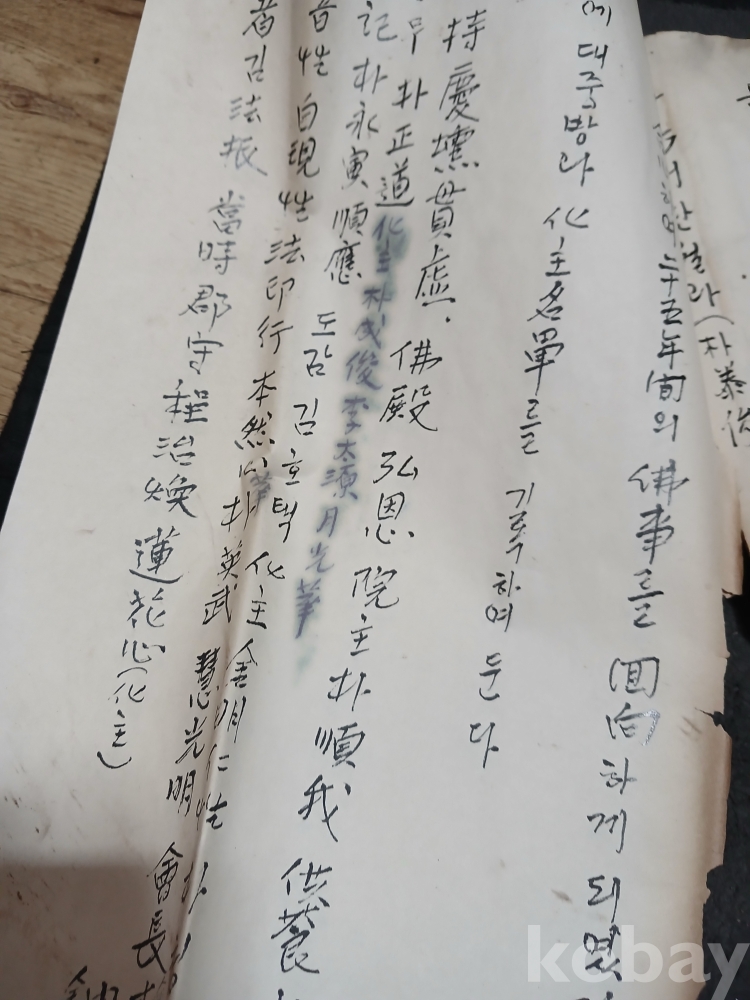 二十五年間의 佛事를 回向하게 되였
에 대중방라 化主名單를 기록하여 둔다
持 慶壎 貫虛 佛殿 弘恩 院主 朴順我 供養
朴正道 化主 朴成俊 李太順 月光華
記 朴永寅 順應 도감 김호택 化主 金明仁性
音性 自現性 法印行 本然心 朴英武 慧光明 會長
者 김法振 當時 郡守 程治煥 蓮花心(化主)
(朴泰俊
kobay